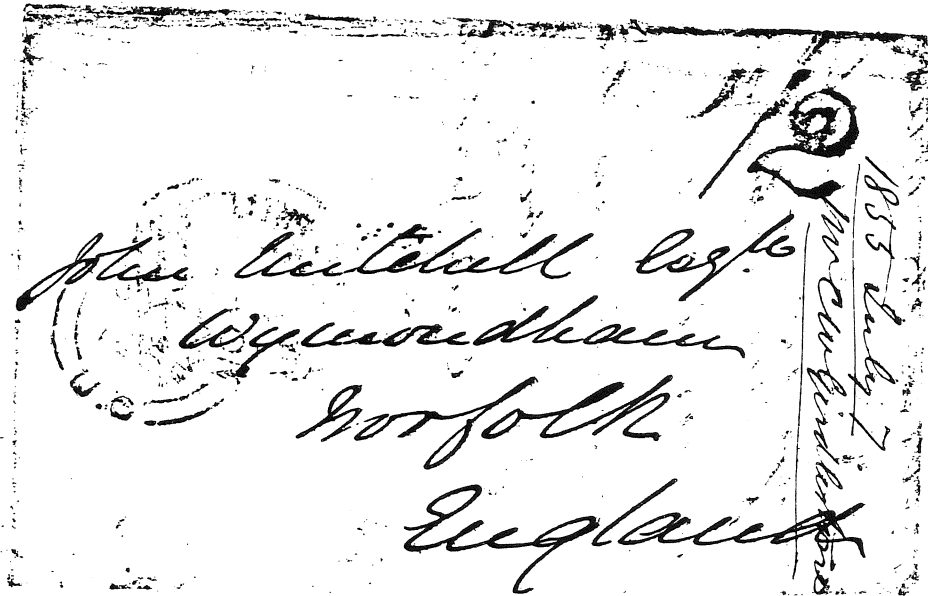 John Mitchell Esqre
Wymondham
Norfolk
England
1/2
1855 July 7